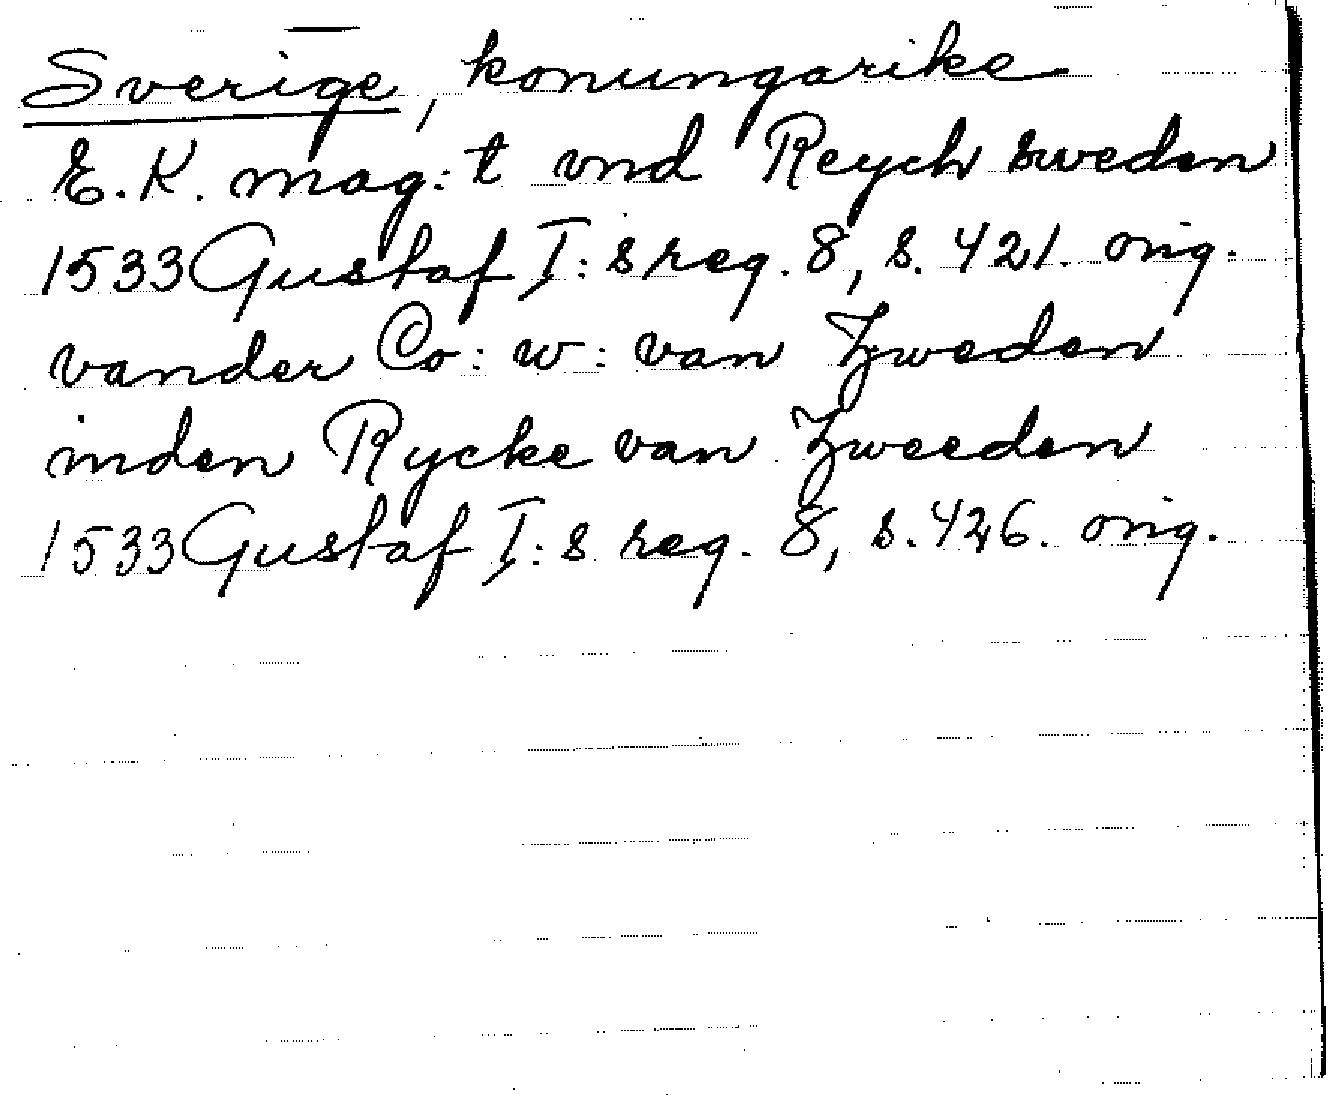 Sverige, konungarike
E. K. mag:t vnd Reych sweden
1533 Gustaf I:s reg. 8, s. 421. orig.
vander Co: w: van Zweden
inden Rycke van Zweeden
1533 Gustaf I:s reg. 8, s. 426. orig.